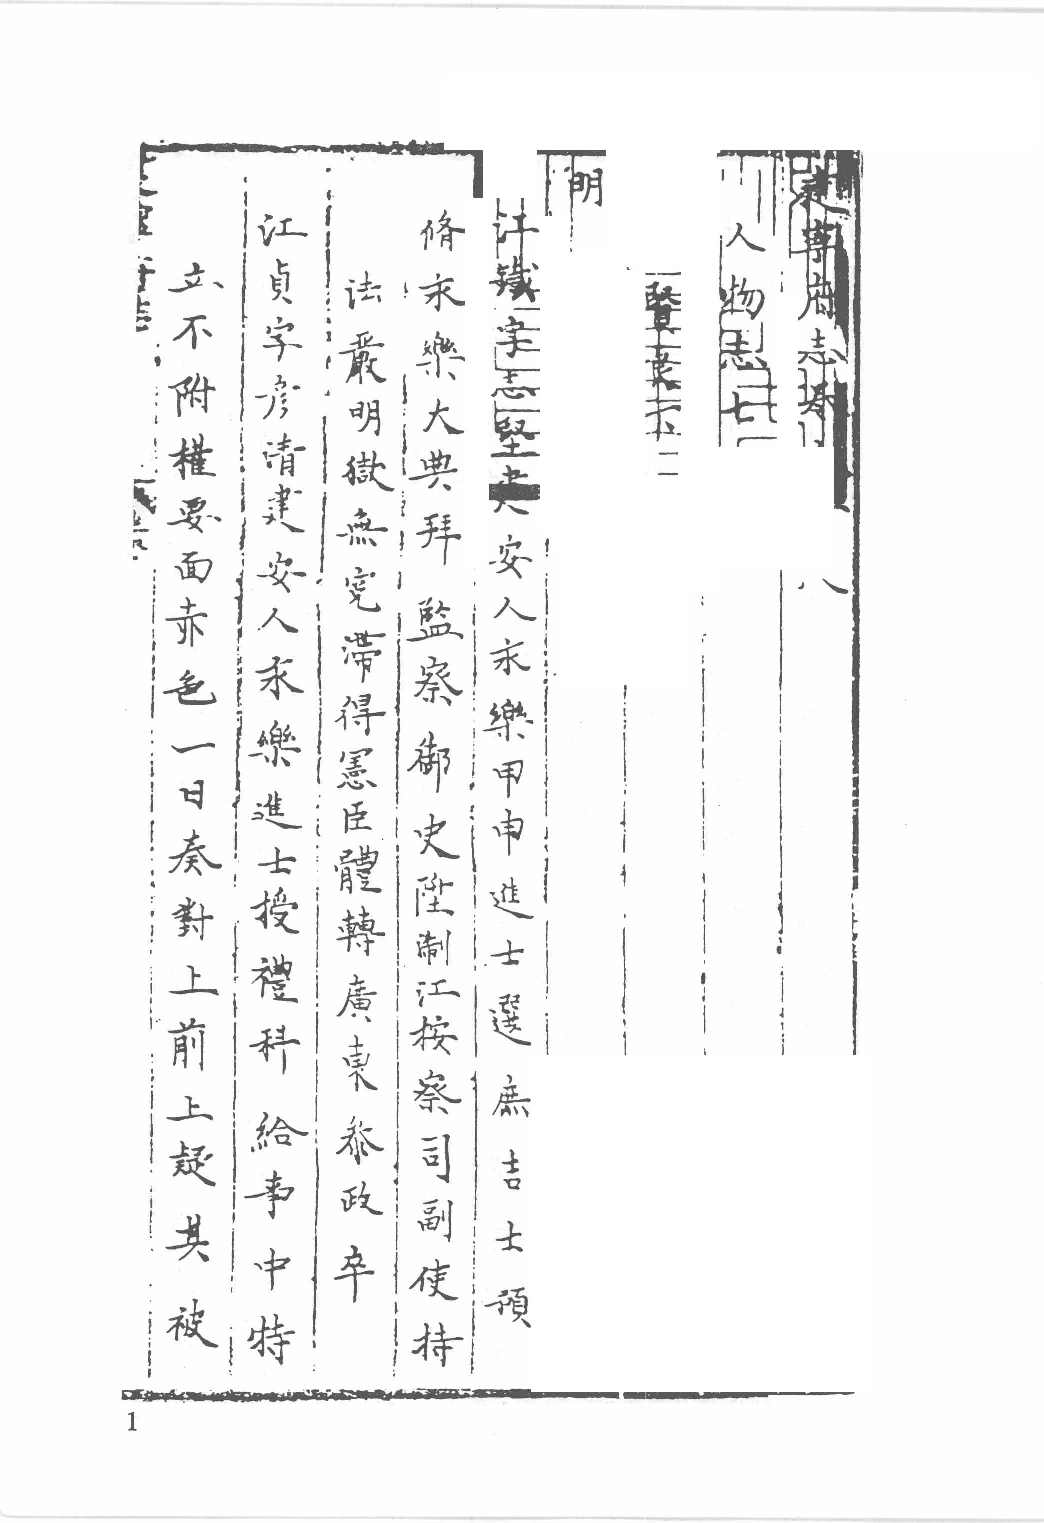 建寧府志卷
人物志七
賢
明
江鐵字志堅建安人永樂甲申進士選庶吉士預
脩永樂大典拜監察御史陞浙江按察司副使持
法嚴明獄無冤滯得憲臣體轉廣東叅政卒
江貞字彥清建安人永樂進士授禮科給事中特
立不附權要面赤色一日奏對上前上疑其被
1